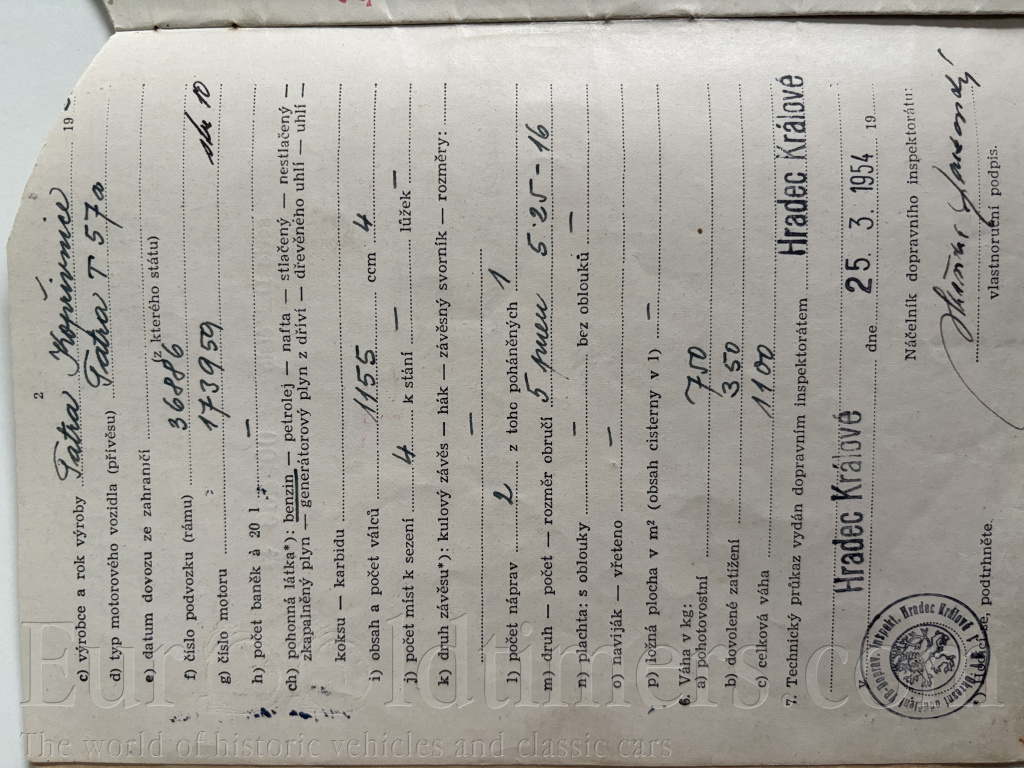 2
c) výrobce a rok výroby Tatra Kopřivnice 19
d) typ motorového vozidla (přívěsu) Tatra T 57a
e) datum dovozu ze zahraničí
(z kterého státu)
f) číslo podvozku (rámu) 36886
g) číslo motoru 173959 10
h) počet baněk à 20 l —
ch) pohonná látka*): benzin — petrolej — nafta — stlačený — nestlačený —
zkapalněný plyn — generátorový plyn z dříví — dřevěného uhlí — uhlí —
koksu — karbidu
i) obsah a počet válců 1155 ccm 4
j) počet míst k sezení 4 k stání — lůžek —
k) druh závěsu*): kulový závěs — hák — závěsný svorník — rozměry:
—
l) počet náprav 2 z toho poháněných 1
m) druh — počet — rozměr obručí 5 pneu 5·25-16
n) plachta: s oblouky — bez oblouků —
o) naviják — vřeteno —
p) ložná plocha v m² (obsah cisterny v l) —
6. Váha v kg:
a) pohotovostní 750
b) dovolené zatížení 350
c) celková váha 1100
7. Technický průkaz vydán dopravním inspektorátem Hradec Králové
V Hradec Králové dne 25. 3. 1954 19
Náčelník dopravního inspektorátu:
vlastnoruční podpis.
podtrhněte.
Doprav. inspekt. Hradec Králové
EuroOldtimers.com
The world of historic vehicles and classic cars